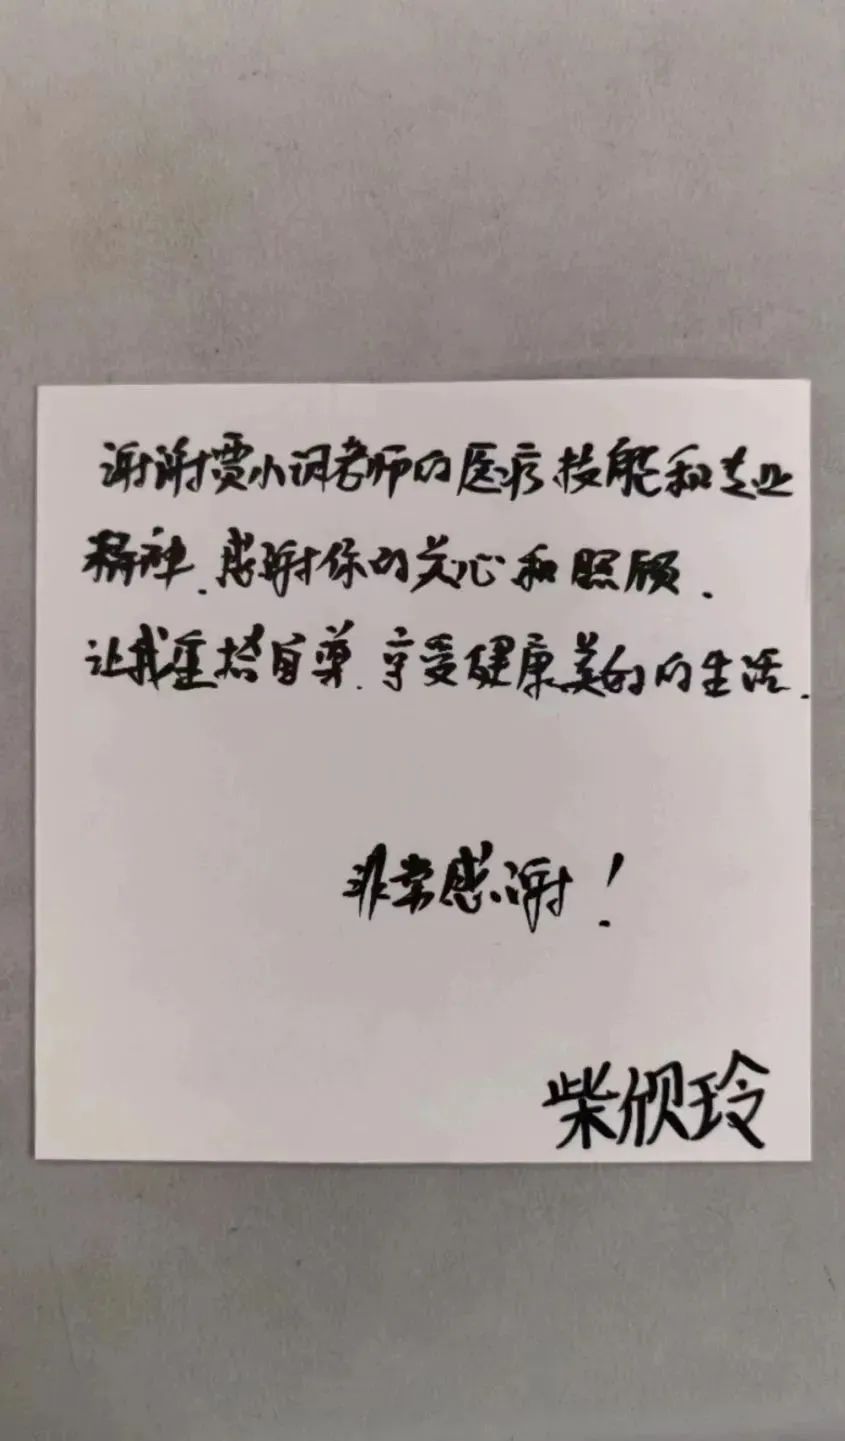 谢谢贾小词老师的医疗技能和专业
精神.感谢你的关心和照顾.
让我重拾自尊.享受健康美的的生活.
非常感谢!
柴颀玲